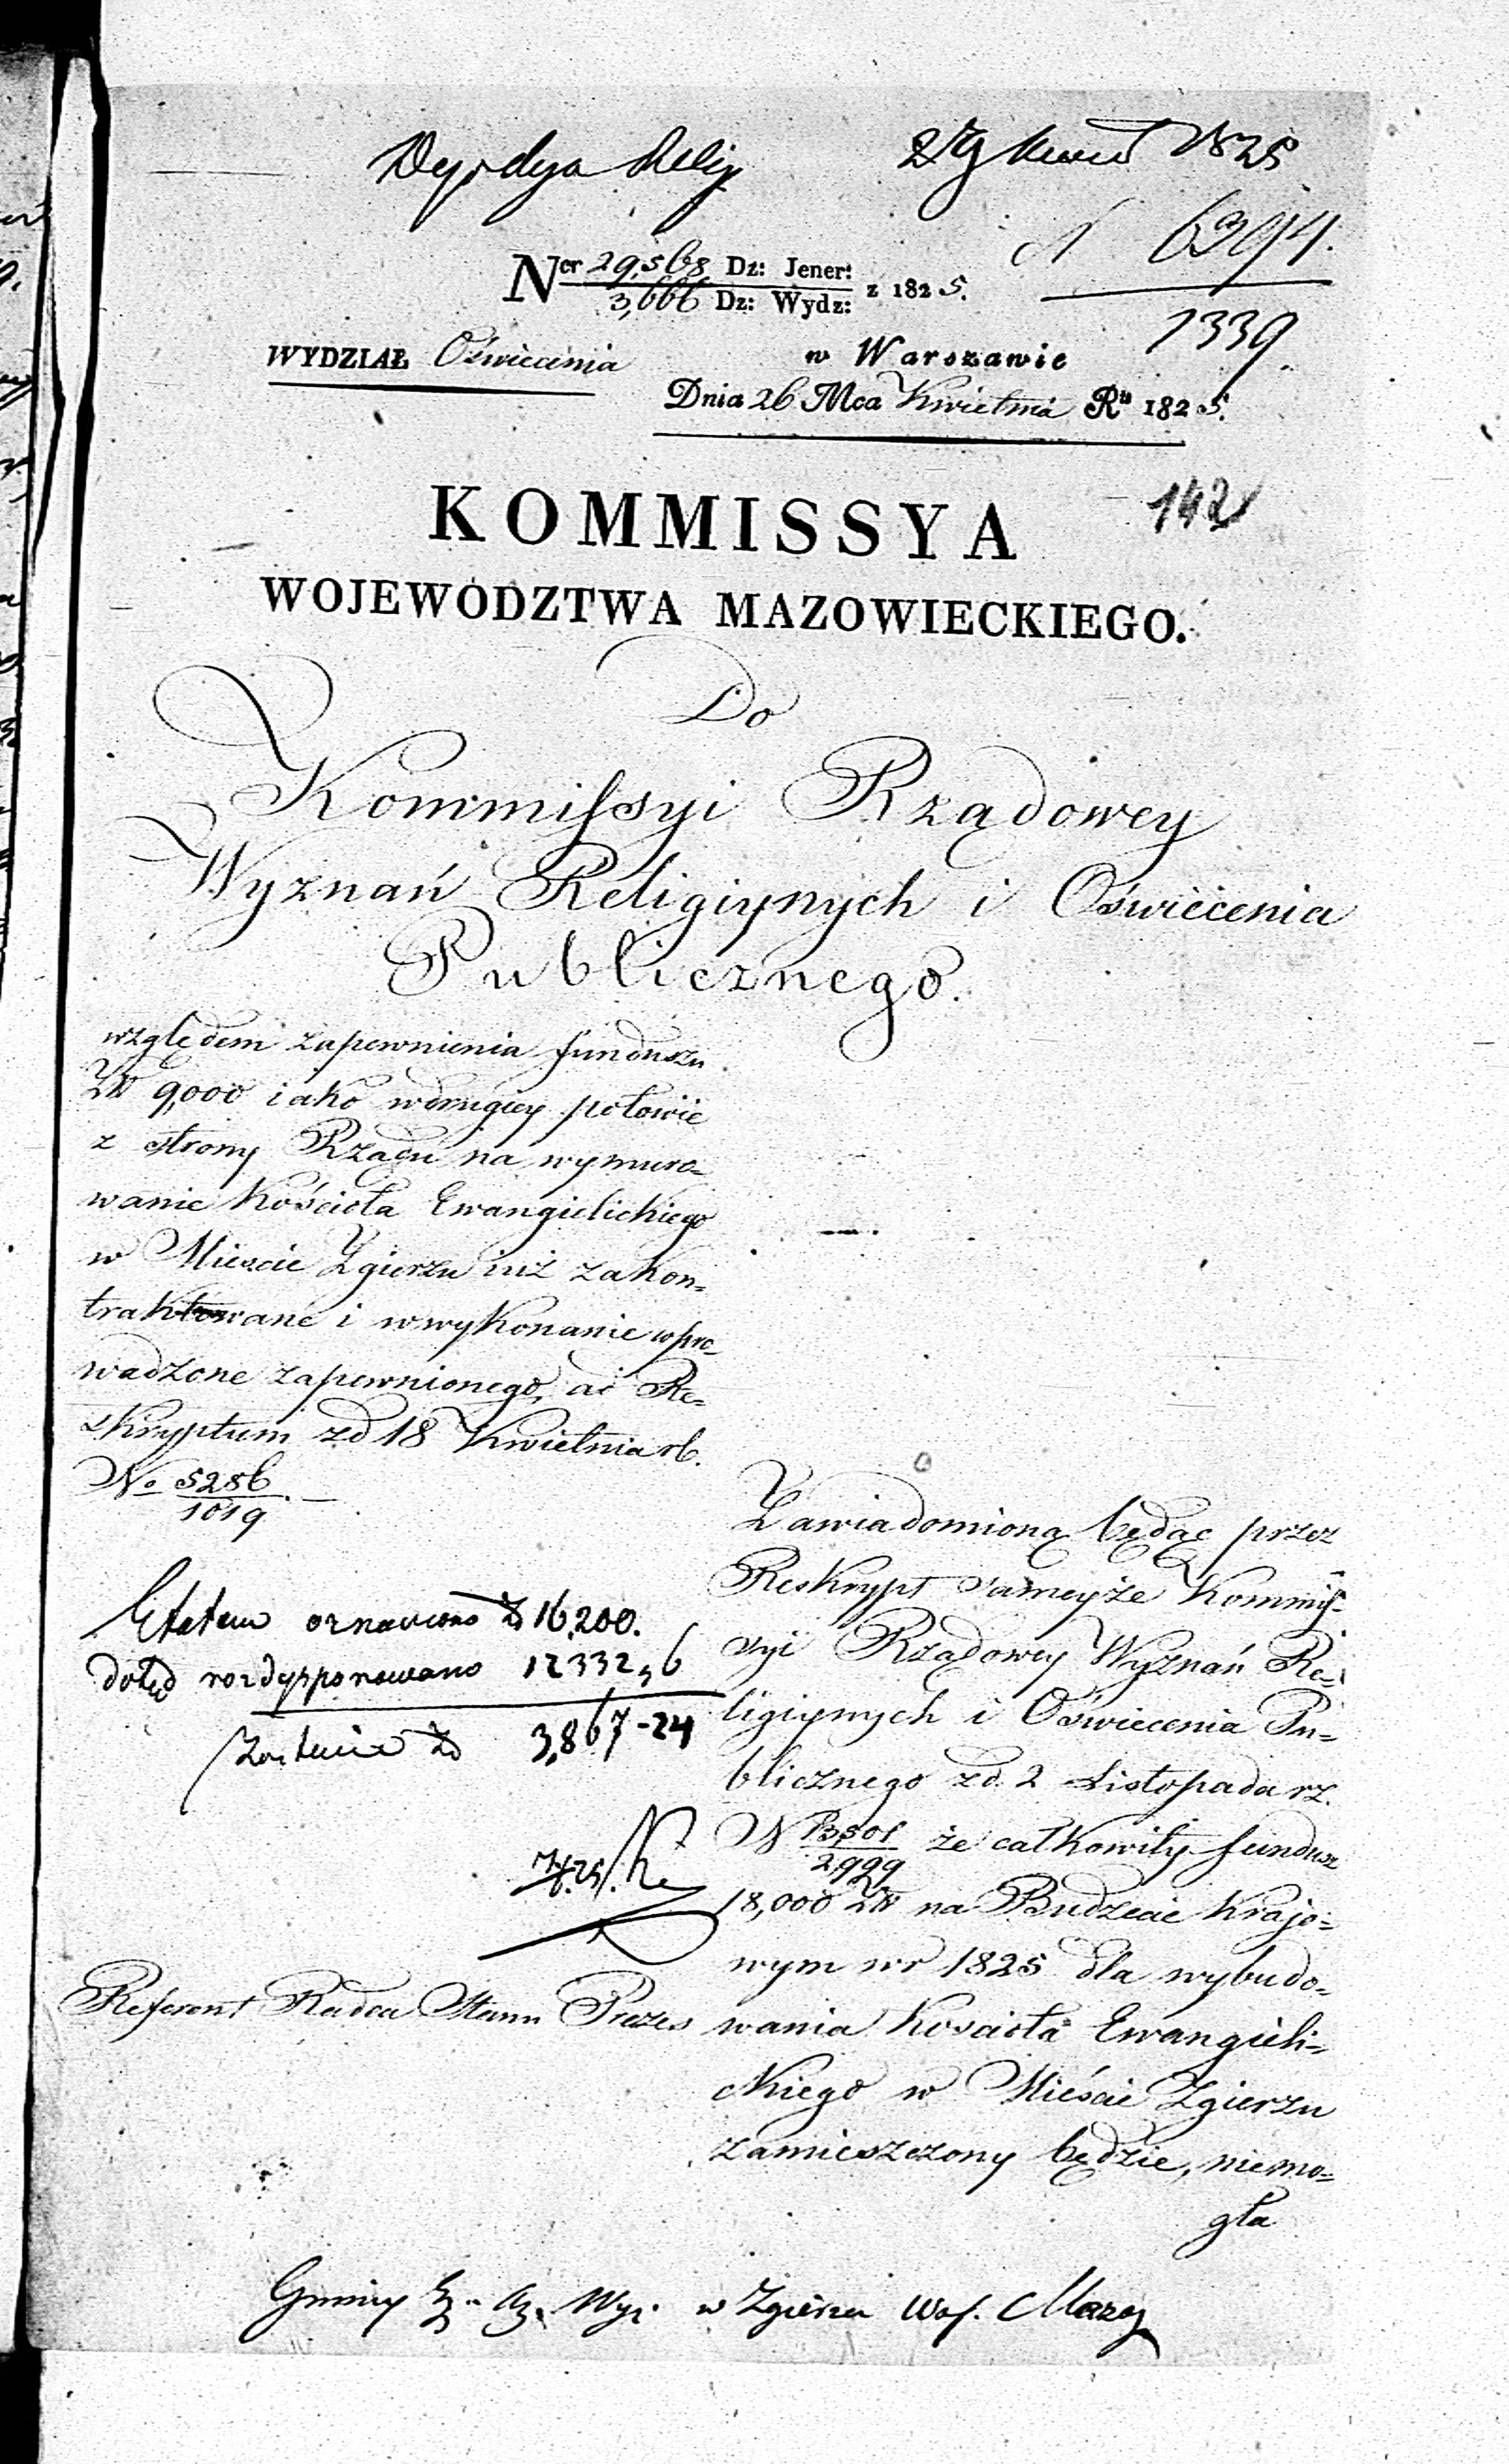 29 Kwiet 1825
N 6394.
1339.
Ner 29,568 Dz: Jener:
3,666 Dz: Wydz: z 1825.
WYDZIAŁ Oświecenia
w Warszawie
Dnia 26 Mca Kwietnia Ru 1825.
142
KOMMISSYA
WOJEWODZTWA MAZOWIECKIEGO.
Do
Kommissyi Rządowey
Wyznań Religiynych i Oświecenia
Publicznego.
względem zapewnienia funduszu
Zł 9,000 iako w drugiey połowie
z strony Rządu na wymuro=
wanie Kościoła Ewangielickiego
w Mieście Zgierzu iuż zakon=
traktowane i w wykonanie wpro=
wadzone zapewnionego, ad Re=
skryptum zd 18 Kwietnia rb.
No 5286
1019.
Etatem oznaczono zł 16,200.
dotąd rozdypponowano 12332,6
zł 3,867-24
Referent Radca Stanu Prezes
Zawiadomioną będąc przez
Reskrypt tameyże Kommis=
syi Rządowey Wyznań Re=
ligiynych i Oświecenia Pu=
blicznego zd. 2 Listopada rz.
N 13,501
2999 że całkowity fundusz
18,000 Zł na Budżecie Krajo=
wym w r 1825 dla wybudo=
wania Kościoła Ewangieli=
ckiego w Mieście Zgierzu
zamieszczony będzie, niemo=
gła
Gminy w Zgierzu Woj. Mazo